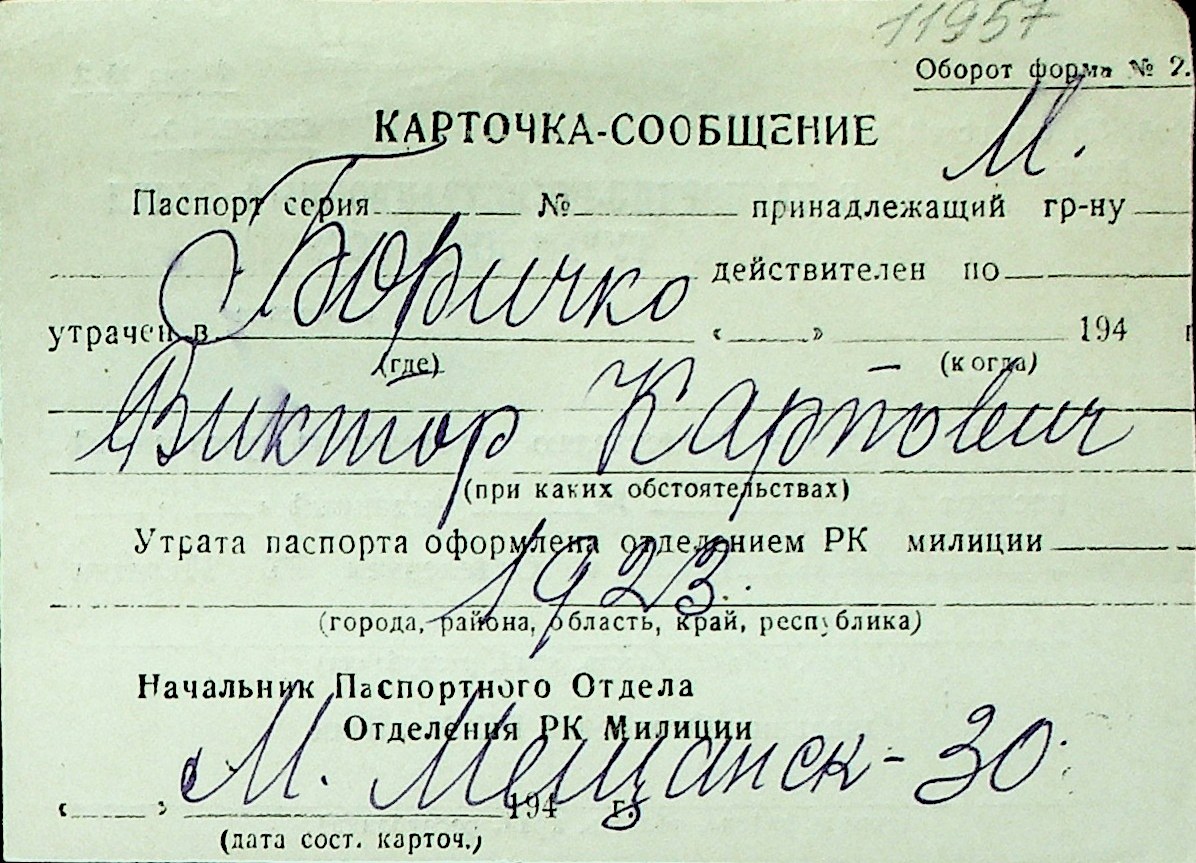 11957
Оборот форма № 2.
КАРТОЧКА-СООБЩЕНИЕ
М.
Паспорт серия № принадлежащий гр-ну
Боричко
действителен по
утрачен в « » 194 г
(где) (когда)
Виктор Карпович
(при каких обстоятельствах)
Утрата паспорта оформлена отделением РК милиции
1923.
(города, района, область, край, республика)
Начальник Паспортного Отдела
Отделения РК Милиции
М. Мещанск - 30
« » 194 г.
(дата сост. карточ.)